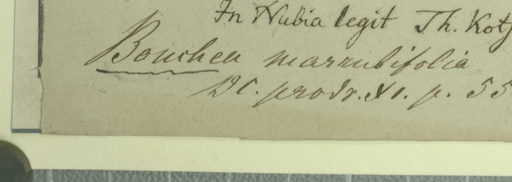 In Nubia legit Th. Kots
Bouchea marrubifolia
DC. prodr. XI. p. 55